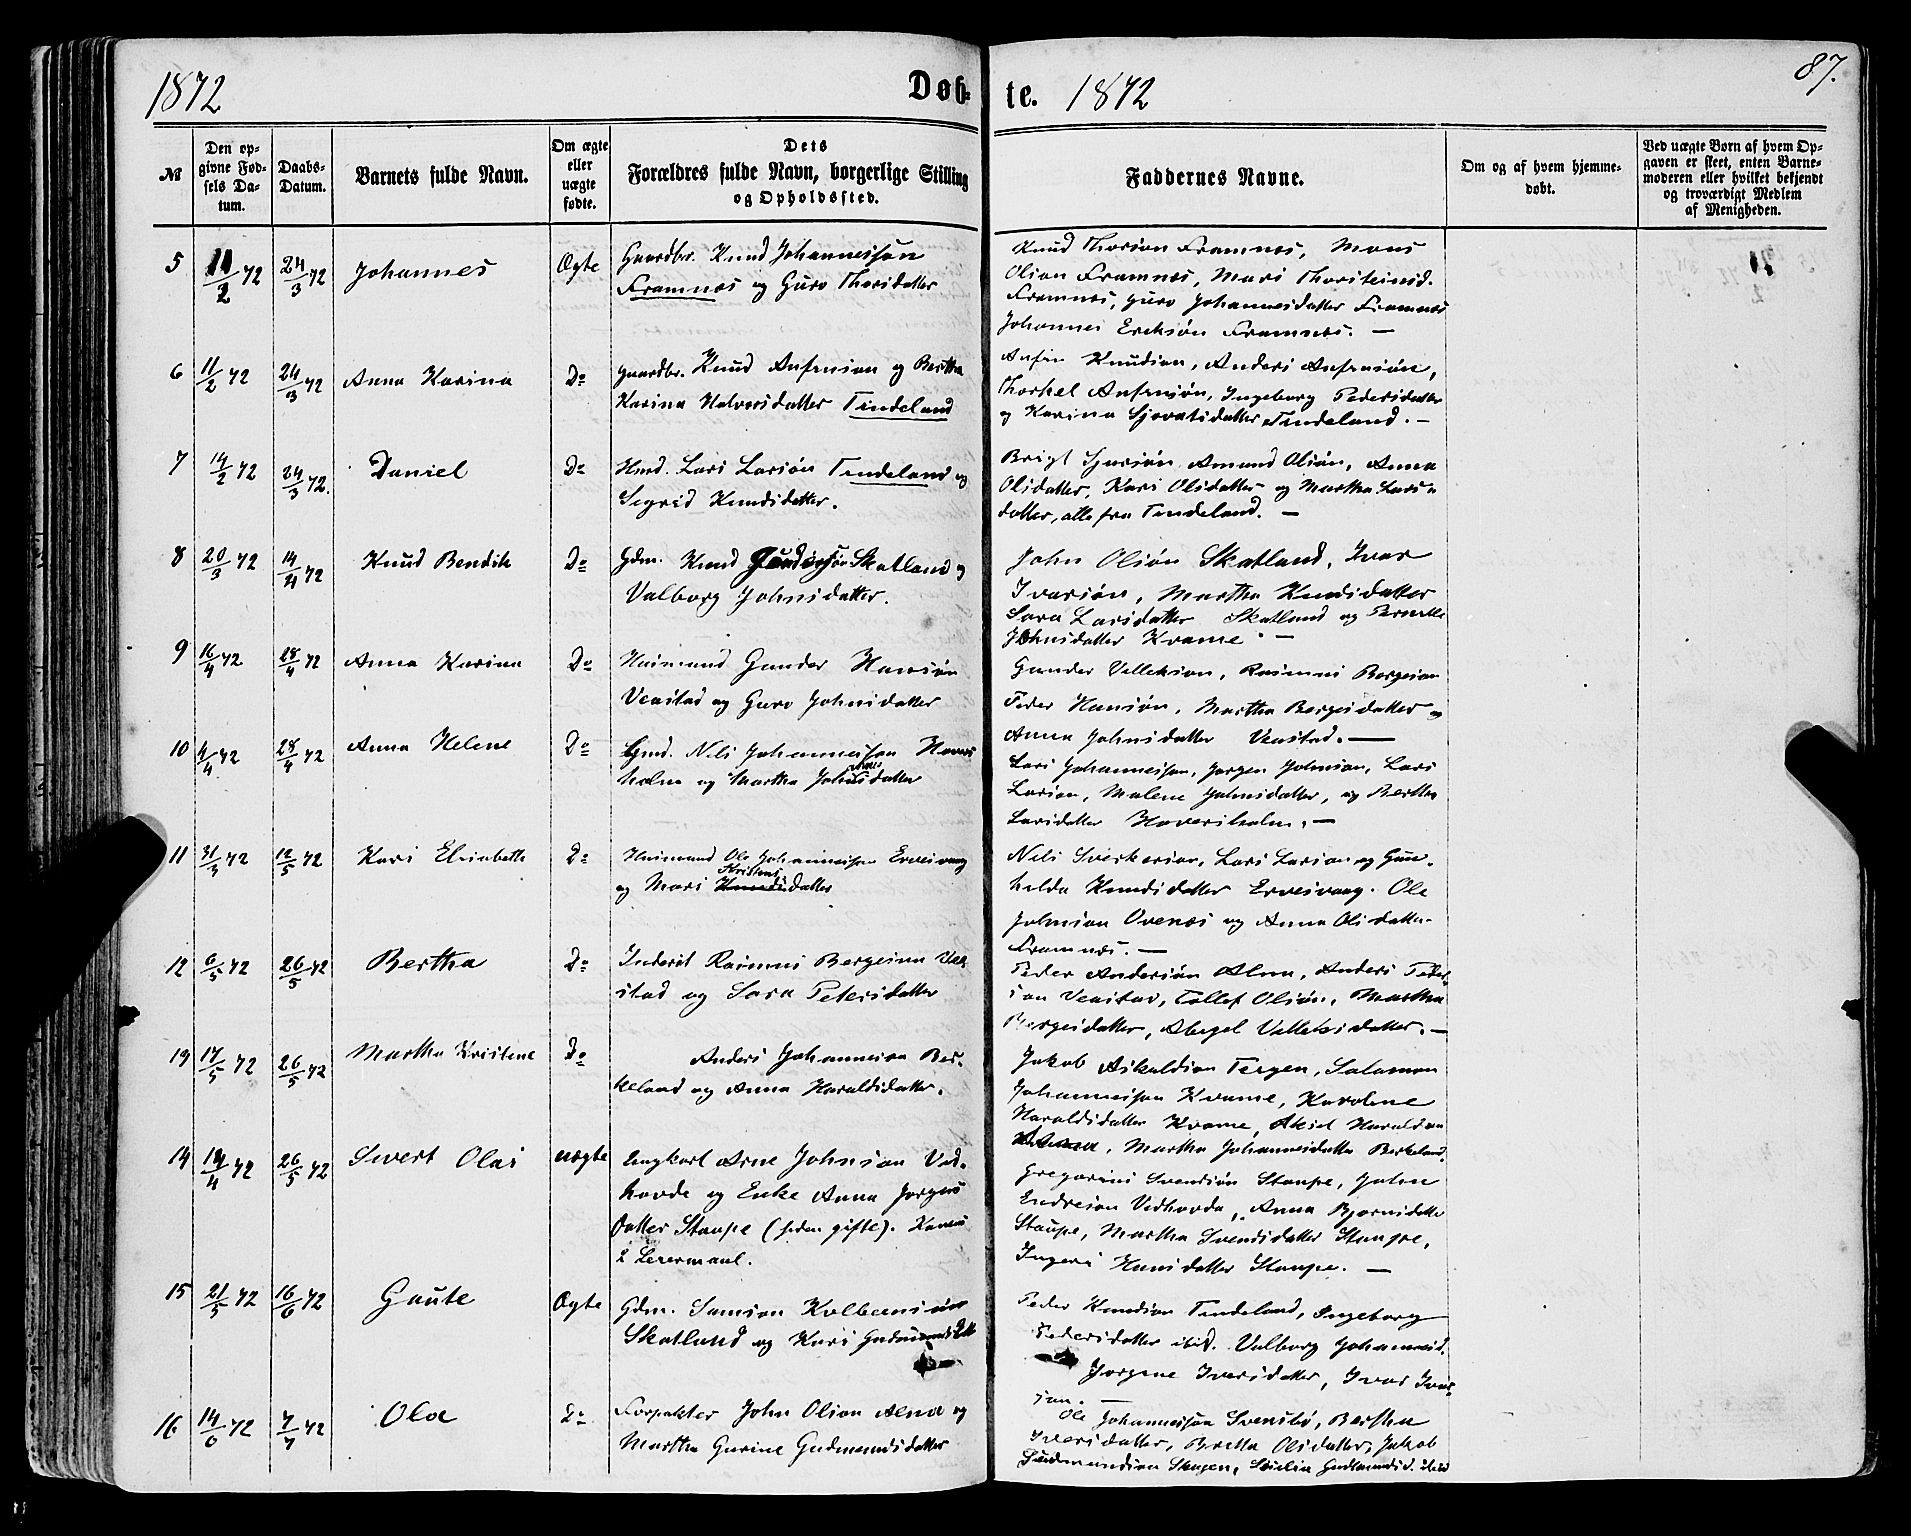 1872
Døb-
te. 1872
87.
№
Den op-
givne Fød-
sels Da-
tum.
Daabs-
Datum.
Barnets fulde Navn.
Om ægte
eller
uægte
fødte.
Dets
Forældres fulde Navn, borgerlige Stilling
og Opholdssted.
Faddernes Navne.
Om og af hvem hjemme-
døbt.
Ved uægte Børn af hvem Op-
gaven er skeet, enten Barne-
moderen eller hvilket bekjendt
og troværdigt Medlem
af Menigheden.
5 11/2 72 24/3 72 Johannes Ægte
Gaardbr. Knud Johannessøn
Framnæs og Guro Thorsdatter
Knud Thorsøn Framnæs, Mons
Olsøn Framnæs, Mari Thorsteinsd.
Framnæs, Guro Johannesdatter Framnæs
Johannes Eriksøn Framnæs. —
6 11/2 72 24/3 72 Anna Karina Do
Gaardbr. Knud Anfinsøn og Bertha
Karina Halvorsdatter Tindeland
Anfin Knudsøn, Anders Anfinsøn,
Thorkel Anfinsøn, Ingeborg Pedersdatter
og Karina Sjovatsdatter Tindeland. —
7 14/2 72 24/3 72. Daniel Do
Hmd. Lars Larsøn Tindeland og
Sigrid Knudsdatter.
Brigt Sjursøn, Amund Olsøn, Anna
Olsdatter, Kari Olsdatter og Martha Lars-
datter, alle fra Tindeland. —
8 20/3 72 14/4 72 Knud Bendik Do
Gdm. Knud Skatland og
Valborg Johnsdatter.
John Olsøn Skatland, Ivar
Ivarsøn, Martha Knudsdatter
Sara Larsdatter Skatland og Pernille
Johnsdatter Kvame. —
9 16/4 72 28/4 72 Anna Karina Do
Husmand Gunder Hansøn
Veastad og Guro Johnsdatter
Gunder Villeksøn, Rasmus Børgesøn
Peder Hansøn, Martha Børgesdatter og
Anna Johnsdatter Veastad. —
10 4/4 72 28/4 72 Anna Helene Do
Gmd. Nils Johannessøn Havers
holm og Martha Johannesdatter
Lars Johannessøn, Jørgen Johnsøn, Lars
Larsøn, Malene Johnsdatter, og Bertha
Larsdatter Haversholm. —
11 31/3 72 12/5 72 Kari Elisabeth Do
Husmand Ole Johannessøn Ervesvaag
og Mari Kristens datter
Nils Sverkersøn, Lars Larsøn og Gun-
helda Knudsdatter Ervesvaag. Ole
Johnsøn Ovenæs og Anna Olsdatter
Framnæs. —
12 6/5 72 26/5 72 Bertha Do
Inderst Rasmus Børgesøn Vea
stad og Sara Petersdatter
Peder Andersøn Alna, Anders Peder-
søn Veastad, Tollef Olsøn, Martha
Børgesdatter, Abegel Velleksdatter. —
19 17/5 72 26/5 72 Martha Kristine Do
Anders Johannessøn Ber-
keland og Anna Haraldsdatter.
Jakob Askaldsøn Teigen, Salamon
Johannessøn Kvame, Karoline
Haraldsdatter Kvame, Aksel Haraldsøn
Kvame, Martha Johannesdatter Berkeland.
14 14/4 72 26/5 72 Sivert Olai uægte
Ungkarl Arne Johnsøn Ved-
hovde og Enke Anna Jørgens
datter Staupe (siden gifte). Hans
2 Leiermaal.
Gregorius Svendsøn Staupe, John
Endresøn Vedhovde, Anna Bjørnsdatter
Staupe, Martha Svendsdatter Staupe,
Ingeri Hansdatter Staupe. —
15 21/5 72 16/6 72 Gaute Ægte
Gdm. Samson Kolbeensøn
Skatland og Kari Gudmundsdatt
Peder Knudsøn Tindeland, Ingeborg
Pedersdatter ibid. Valborg Johannesd.
Jørgine Iversdatter, Ivar Ivar-
søn. —
16 14/6 72 7/7 72 Ola Do
Forpakter John Olsøn Alna og
Martha Gurine Gudmundsdatter
Ole Johannessøn Svensbø, Bertha
Iversdatter, Bertha Olsdatter, Jakob
Gudmundsøn Skagen, Gudmundsd. ibid